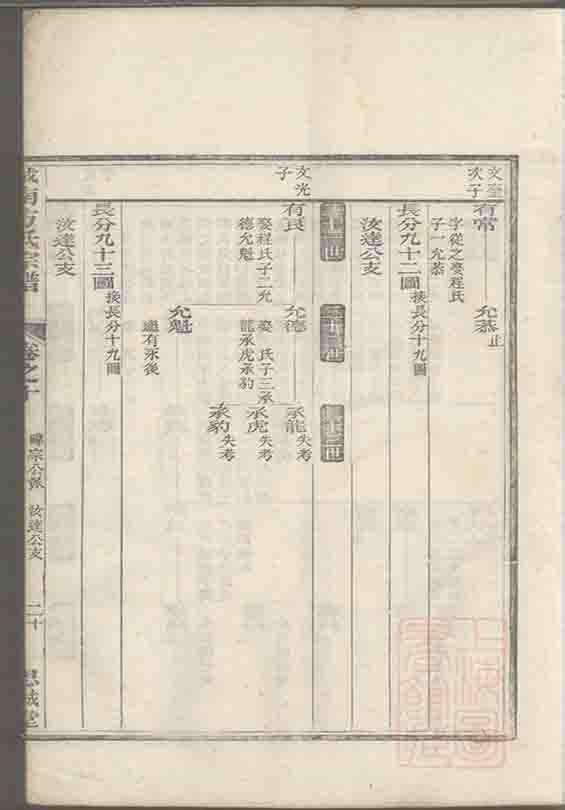 次子
有常
字從之娶程氏
子一允恭
允恭止
長分九十二圖接長分十九圖
汝達公支
文光
子
有良
娶程氏子二允
德允魁
允德
娶 氏子三承
龍承虎承豹
承龍失考
承虎失考
承豹失考
允魁
繼有永後
長分九十三圖接長分十九圖
汝達公支
城南方氏宗譜
卷之十
公派 汝達公支
二十
思誠堂